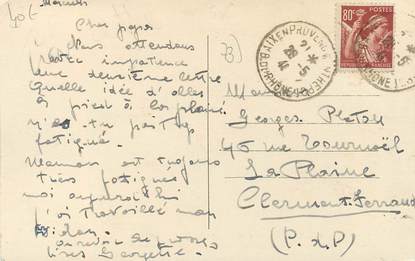 40€
Mercredi
Cher papa
Nous attendons
avec impatience
une deuxième lettre
Quelle idée d'aller
à pied à la plaine
n'es tu pas trop
fatigué.
Maman est toujours
très fatiguée
moi aujourd'hui
j'ai travaillé mon
au revoir
Georgette
AIX EN PROVENCE
28
41
80c
POSTES
Georges Platon
45 rue Tournoël
La Plaine
Clermont-Ferrand
(P. d. D)